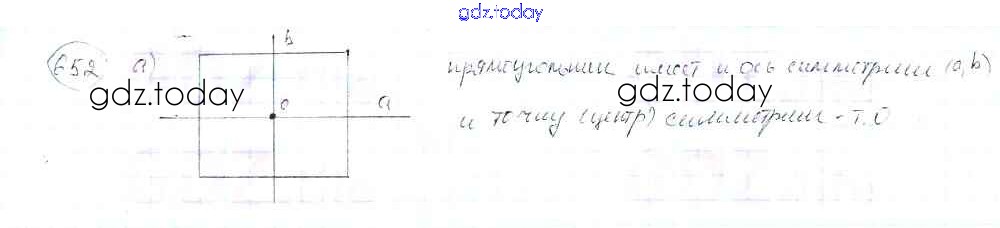 gdz.today
652 а) b прямоугольник имеет и ось симметрии (a, b)
gdz.today gdz.today
o a
и точку (центр) симметрии - т. О